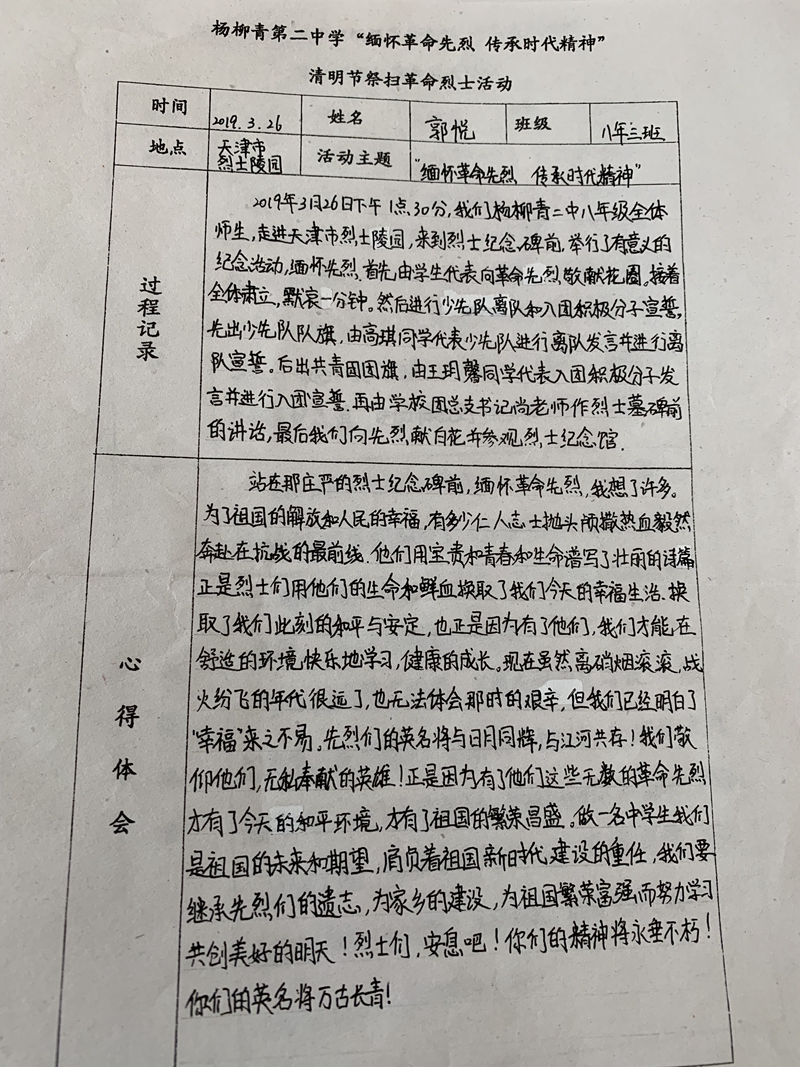 杨柳青第二中学“缅怀革命先烈 传承时代精神”
清明节祭扫革命烈士活动
时间 2019.3.26 姓名 郭悦 班级 八年三班
地点 天津市烈士陵园 活动主题 “缅怀革命先烈 传承时代精神”
过程记录
2019年3月26日下午1点30分,我们杨柳青二中八年级全体
师生,走进天津市烈士陵园,来到烈士纪念碑前,举行了有意义的
纪念活动,缅怀先烈.首先由学生代表向革命先烈敬献花圈。接着
全体肃立,默哀一分钟。然后进行少先队离队和入团积极分子宣誓,
先出少先队队旗,由高琪同学代表少先队进行离队发言并进行离
队宣誓。后出共青团团旗,由王玥馨同学代表入团积极分子发
言并进行入团宣誓.再由学校团总支书记尚老师作烈士墓碑前
的讲话,最后我们向先烈献白花并参观烈士纪念馆.
心得体会
站在那庄严的烈士纪念碑前,缅怀革命先烈,我想了许多。
为了祖国的解放和人民的幸福,有多少仁人志士抛头颅撒热血毅然
奔赴在抗战的最前线.他们用宝贵和青春和生命谱写了壮丽的诗篇
正是烈士们用他们的生命和鲜血换取了我们今天的幸福生活.换
取了我们此刻的和平与安定,也正是因为有了他们,我们才能在
舒适的环境快乐地学习,健康的成长。现在虽然离硝烟滚滚,战
火纷飞的年代很远了,也无法体会那时的艰辛,但我们已经明白了
“幸福”来之不易。先烈们的英名将与日月同辉,与江河共存!我们敬
仰他们,无私奉献的英雄!正是因为有了他们这些无数的革命先烈
才有了今天的和平环境,才有了祖国的繁荣昌盛。做一名中学生我们
是祖国的未来和期望,肩负着祖国新时代建设的重任,我们要
继承先烈们的遗志,为家乡的建设,为祖国繁荣富强而努力学习
共创美好的明天!烈士们,安息吧!你们的精神将永垂不朽!
你们的英名将万古长青!